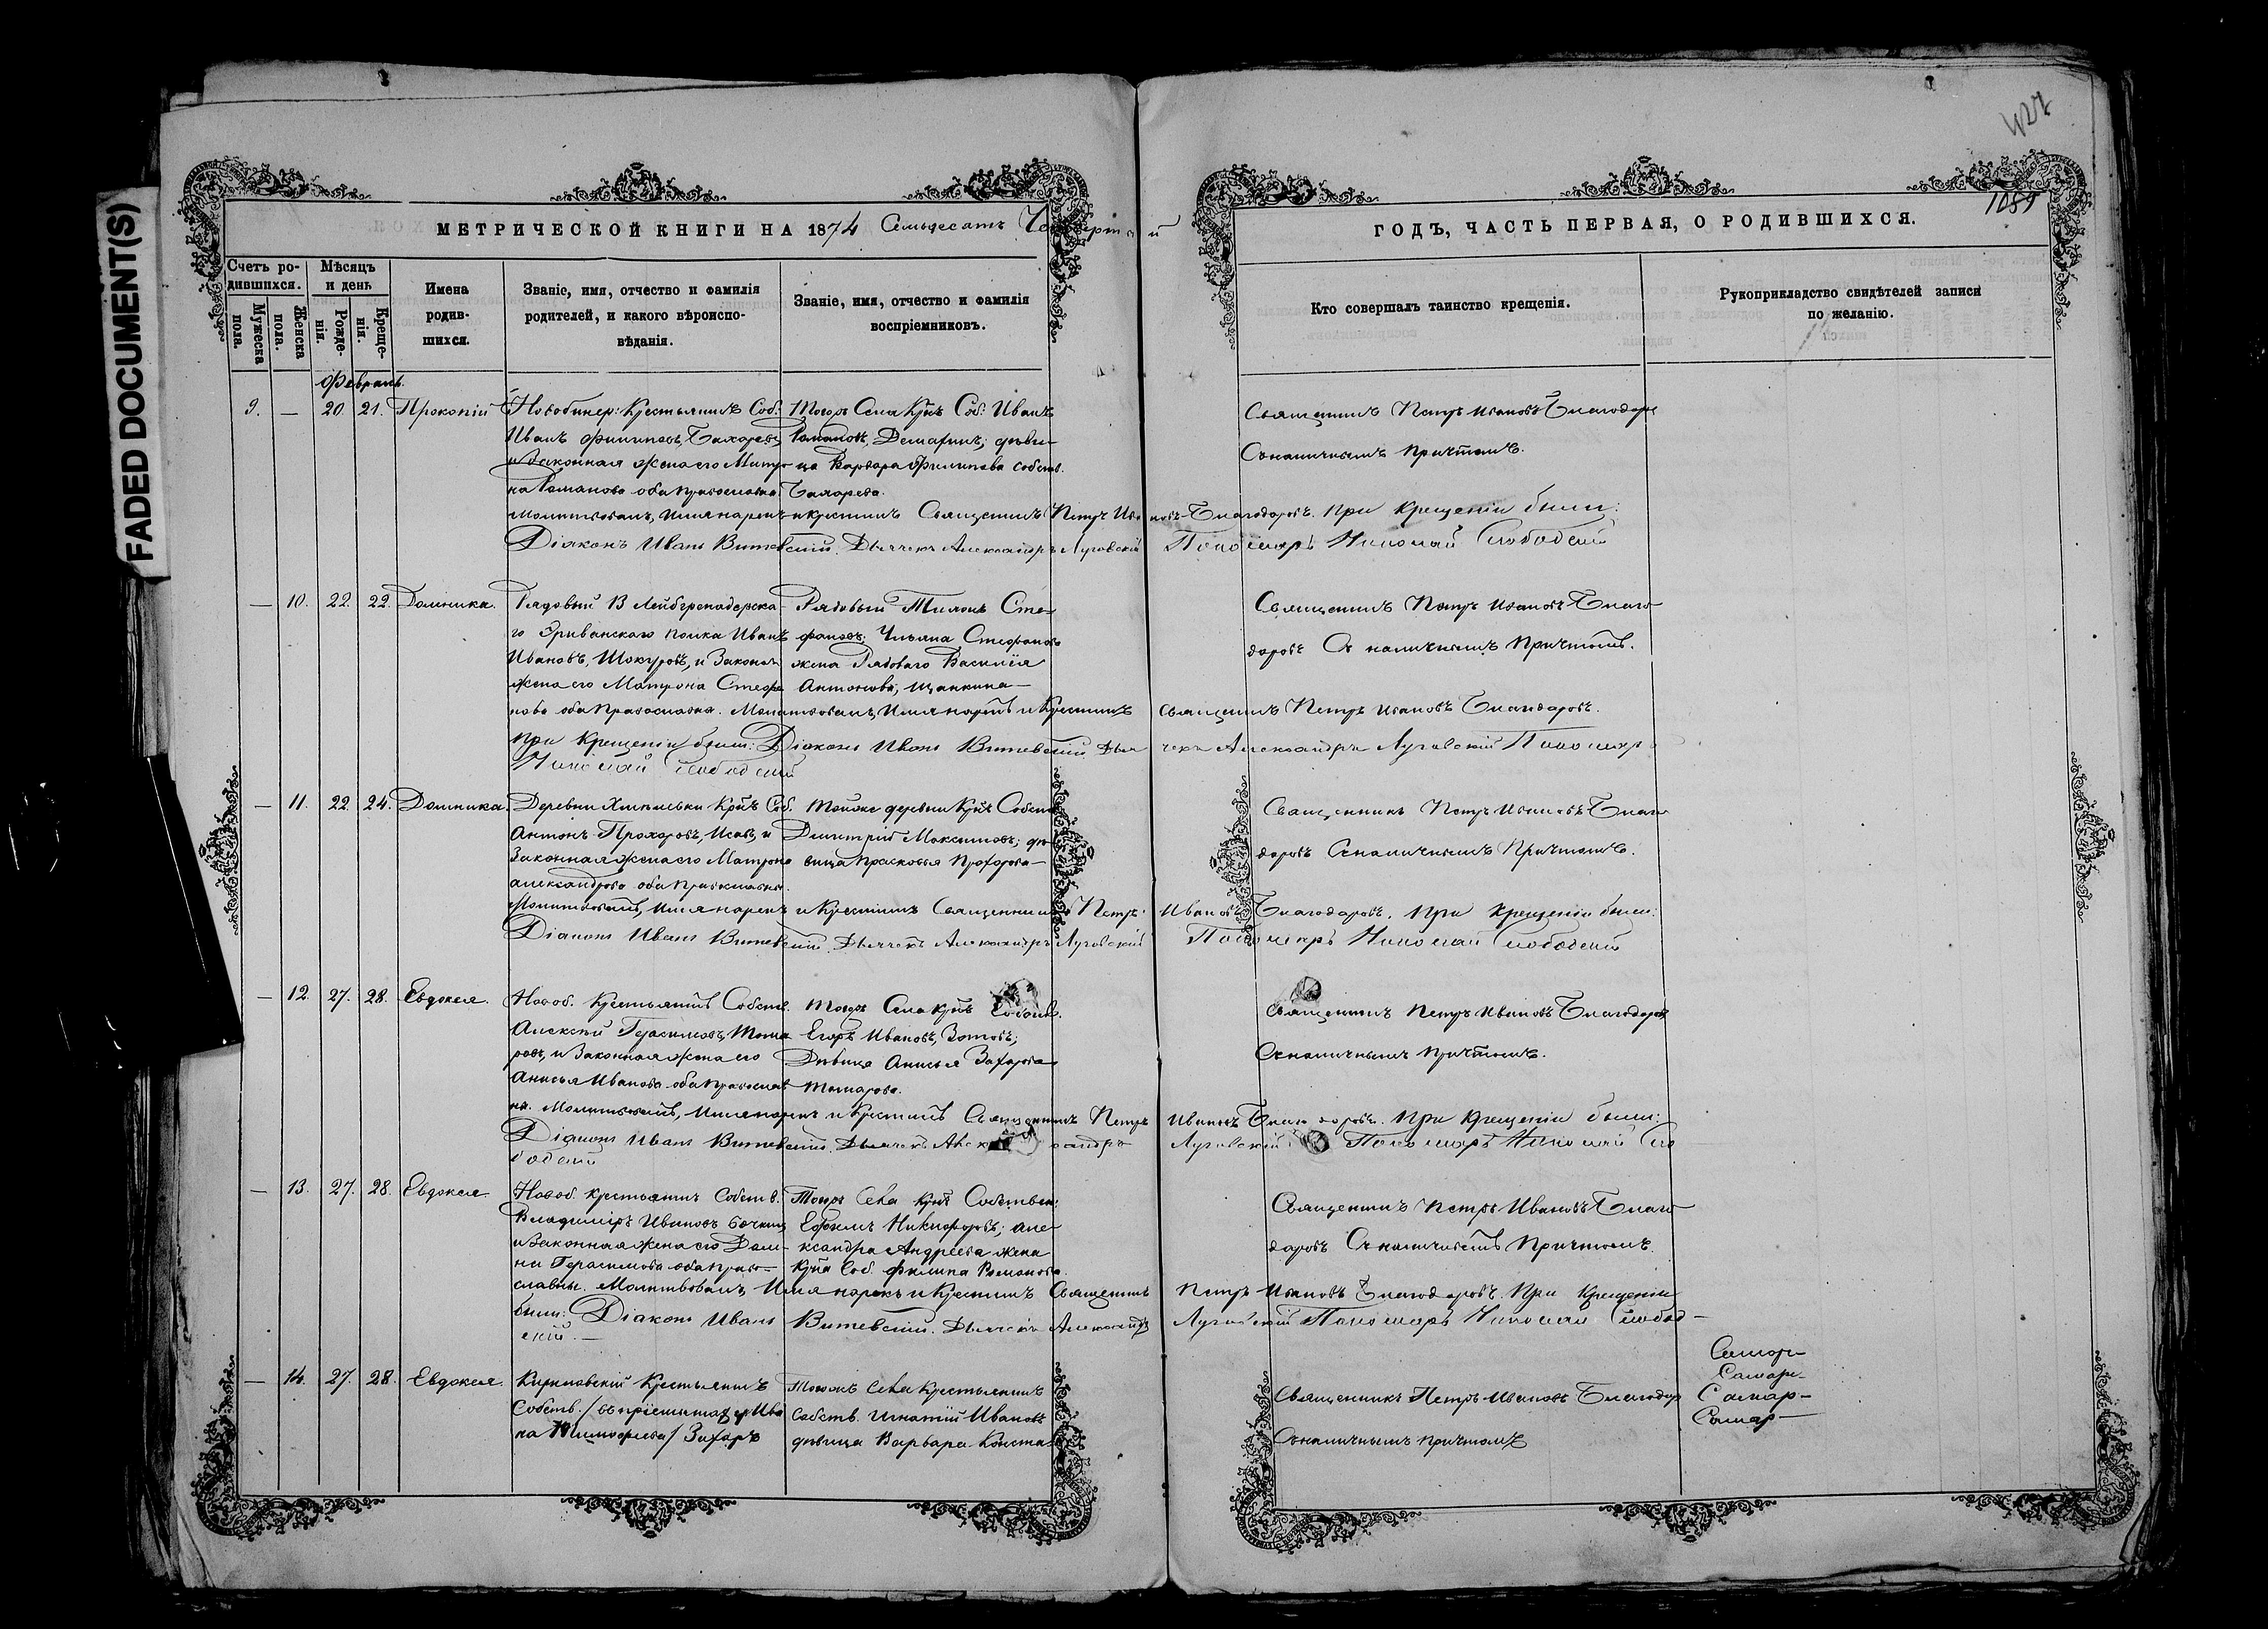 FADED DOCUMENT(S)
427
1089
МЕТРИЧЕСКОЙ КНИГИ НА 1874 Семьдесятъ Четвертый
ГОДЪ, ЧАСТЬ ПЕРВАЯ, О РОДИВШИХСЯ.
Счетъ родившихся.
Мужеска пола.
Женска пола.
Мѣсяцъ и день
Рожденія.
Крещенія.
Имена родившихся.
Званіе, имя, отчество и фамилія родителей, и какого вѣроисповѣданія.
Званіе, имя, отчество и фамилія воспріемниковъ.
Кто совершалъ таинство крещенія.
Рукоприкладство свидѣтелей записи по желанію.
Февраль
9. — 20. 21. Прокопій
Новобинер: Крестьянинъ Соб:
Иванъ Филиповъ, Бахаревъ
и законная жена его Матро-
на Романова оба православна.
Того Села Кр. Соб: Иванъ
Романовъ, деви-
ца Варвара Филипова собств.
Бахарева.
Священникъ Петръ Ивановъ Благодаро
Съ наличнымъ причтомъ.
Молитвовалъ, имя нарекъ и крестилъ Священникъ Петръ Ивановъ Благодаровъ. При крещеніи были:
Діаконъ Иванъ Витевскій. Дьячекъ Александръ Луговскій Пономарь Николай Слободскій
— 10. 22. 22. Домника.
Рядовый В Лейбгренадерска-
го Эриванскаго полка Иванъ
Ивановъ, Шокуровъ, и законая
жена его Матрона Стефа
нова оба православна.
Рядовый Тихонъ Сте-
фановъ; Ульяна Стефанова
жена Рядоваго Василія
Антонова, Щанкина
Священникъ Петръ Ивановъ Благо
даровъ Съ наличнымъ причтомъ.
Молитвовалъ, имя нарекъ и крестилъ Священникъ Петръ Ивановъ Благодаровъ.
При крещеніи были: Діаконъ Иванъ Витевскій. Дьячекъ Александръ Луговскій Пономарь
Николай Слободскій
— 11. 22. 24. Домника.
Деревни Кр. Соб.
Антонъ Прохоровъ, Исаевъ, и
Законная жена его Матрона
Александрова оба православны.
Тойже деревни Кр. Собств.
Димитрій Максимовъ; дѣ
вица Прасковья Прохорова
Священникъ Петръ Ивановъ Благо
даровъ Съ наличнымъ Причтомъ.
Молитвовалъ, имя нарекъ и Крестилъ Священникъ Петръ Ивановъ Благодаровъ. При крещеніи были:
Діаконъ Иванъ Витевскій. Дьячекъ Александръ Луговскій Пономарь Николай Слободскій
— 12. 27. 28. Евдокея.
Новоб. Крестьянинъ Собств.
Алексѣй Герасимовъ,
ровъ, и Законная жена его
Анисья Иванова оба православ
на.
Того Села Кр. Собств.
Егоръ Ивановъ, Зотовъ;
Дѣвица Анисья Захарова
Священникъ Петръ Ивановъ Благодаровъ
Съ наличнымъ причтомъ.
Молитвовалъ, имя нарекъ и крестилъ Священникъ Петръ Ивановъ Благодаровъ. При крещеніи были:
Діаконъ Иванъ Витевскій. Дьячекъ Александръ Луговскій Пономарь Николай Сло
бодскій
— 13. 27. 28. Евдокея
Новоб. крестьянинъ Собств.
Владиміръ Ивановъ Бочкинъ
и Законная жена его Дом-
на Герасимова оба право-
славны.
Того Села Кр. Собствен:
Ефремъ Никифоровъ; Але-
ксандра Андреева жена
Кр. Соб. Филипа Романова
Священникъ Петръ Ивановъ Благо
даровъ Съ наличнымъ Причтомъ.
Молитвовалъ, Имя нарекъ и Крестилъ Священникъ Петръ Ивановъ Благодаровъ. При Крещеніи
были: Діаконъ Иванъ Витевскій. Дьячекъ Александръ Луговскій Пономарь Николай Слобод-
скій.—
— 14. 27. 28. Евдокея.
Крестьянинъ
Собств. Ива
на Тимофеева/ Захаръ
Села Крестьянинъ
Собств. Игнатій Ивановъ
дѣвица Варвара Конста-
Священникъ Петръ Ивановъ Благодар
Съ наличнымъ причтомъ
Самар-
Самар-
Самар-
Самар-